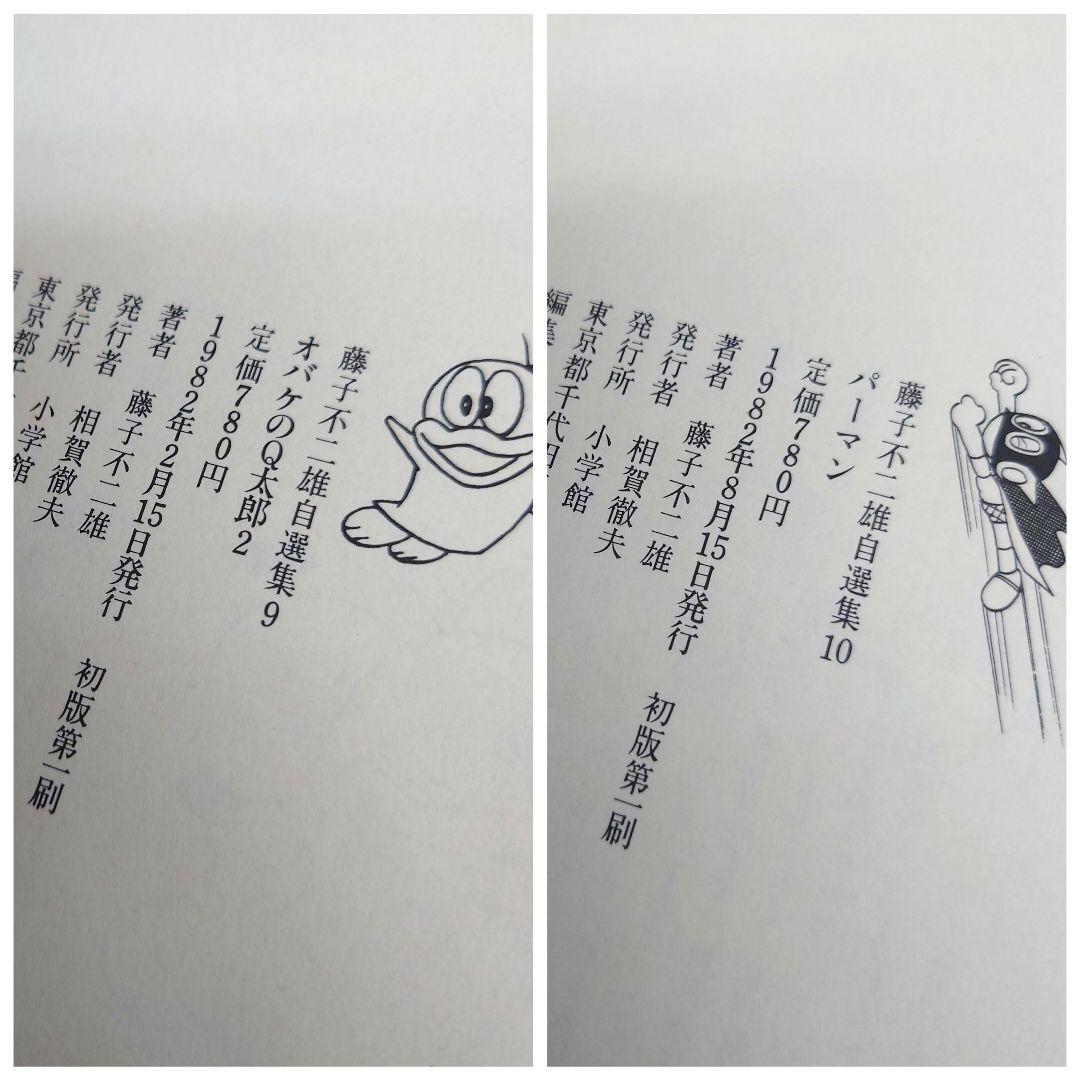 藤子不二雄自選集9
オバケのQ太郎2
定価780円
1982年2月15日発行 初版第一刷
著者 藤子不二雄
発行者 相賀徹夫
発行所 小学館
東京都千
藤子不二雄自選集10
パーマン
定価780円
1982年8月15日発行 初版第一刷
著者 藤子不二雄
発行者 相賀徹夫
発行所 小学館
東京都千代田
編集